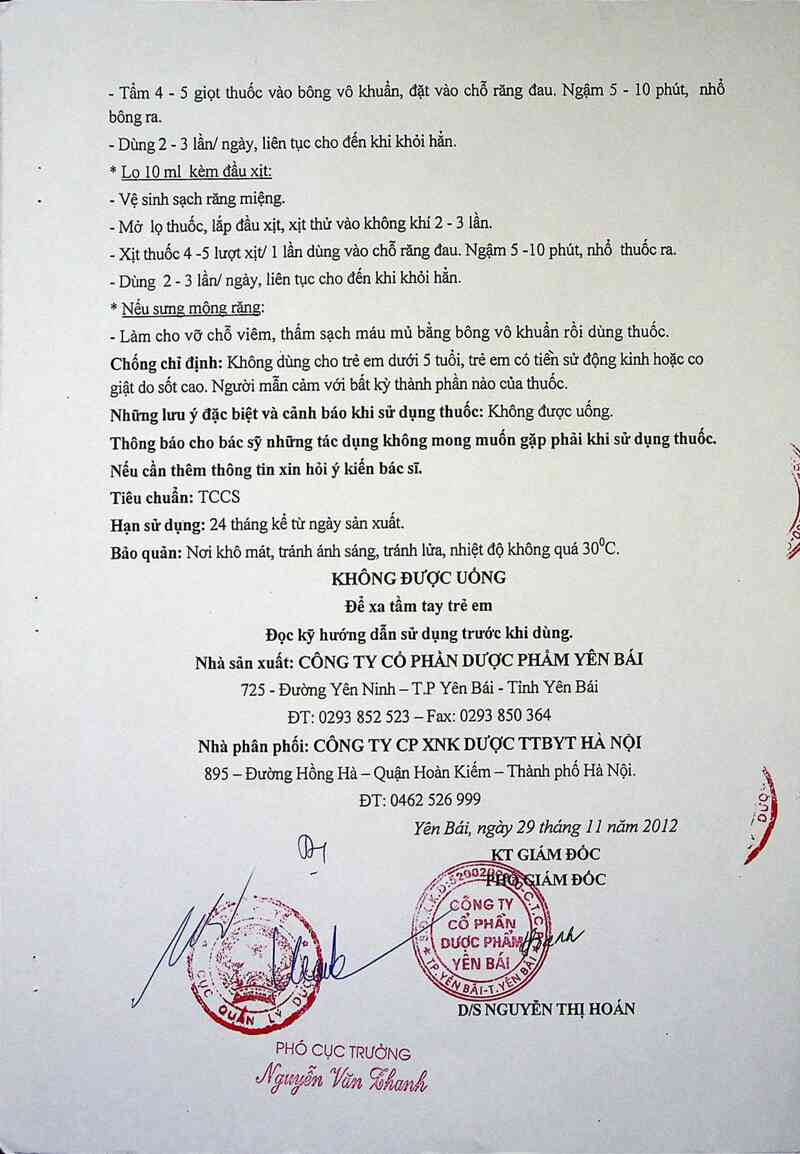 - Tẩm 4 - 5 giọt thuốc vào bông vô khuẩn, đặt vào chỗ răng đau. Ngậm 5 - 10 phút, nhổ
bông ra.
- Dùng 2 - 3 lần/ ngày, liên tục cho đến khi khỏi hẳn.
* Lọ 10 ml kèm đầu xịt:
- Vệ sinh sạch răng miệng.
- Mở lọ thuốc, lắp đầu xịt, xịt thử vào không khí 2 - 3 lần.
- Xịt thuốc 4 -5 lượt xịt/ 1 lần dùng vào chỗ răng đau. Ngậm 5 -10 phút, nhổ thuốc ra.
- Dùng 2 - 3 lần/ ngày, liên tục cho đến khi khỏi hẳn.
* Nếu sưng mộng răng:
- Làm cho vỡ chỗ viêm, thấm sạch máu mủ bằng bông vô khuẩn rồi dùng thuốc.
Chống chỉ định: Không dùng cho trẻ em dưới 5 tuổi, trẻ em có tiền sử động kinh hoặc co
giật do sốt cao. Người mẫn cảm với bất kỳ thành phần nào của thuốc.
Những lưu ý đặc biệt và cảnh báo khi sử dụng thuốc: Không được uống.
Thông báo cho bác sỹ những tác dụng không mong muốn gặp phải khi sử dụng thuốc.
Nếu cần thêm thông tin xin hỏi ý kiến bác sĩ.
Tiêu chuẩn: TCCS
Hạn sử dụng: 24 tháng kể từ ngày sản xuất.
Bảo quản: Nơi khô mát, tránh ánh sáng, tránh lửa, nhiệt độ không quá 30⁰C.
KHÔNG ĐƯỢC UỐNG
Để xa tầm tay trẻ em
Đọc kỹ hướng dẫn sử dụng trước khi dùng.
Nhà sản xuất: CÔNG TY CỔ PHẦN DƯỢC PHẨM YÊN BÁI
725 - Đường Yên Ninh – T.P Yên Bái - Tỉnh Yên Bái
ĐT: 0293 852 523 – Fax: 0293 850 364
Nhà phân phối: CÔNG TY CP XNK DƯỢC TTBYT HÀ NỘI
895 – Đường Hồng Hà – Quận Hoàn Kiếm – Thành phố Hà Nội.
ĐT: 0462 526 999
Yên Bái, ngày 29 tháng 11 năm 2012
KT GIÁM ĐỐC
PHÓ GIÁM ĐỐC
CÔNG TY
CỔ PHẦN
DƯỢC PHẨM
YÊN BÁI
TP.YÊN BÁI-T.YÊN BÁI
CỤC QUẢN LÝ DƯỢC
D/S NGUYỄN THỊ HOÁN
PHÓ CỤC TRƯỞNG
Nguyễn Văn Thanh